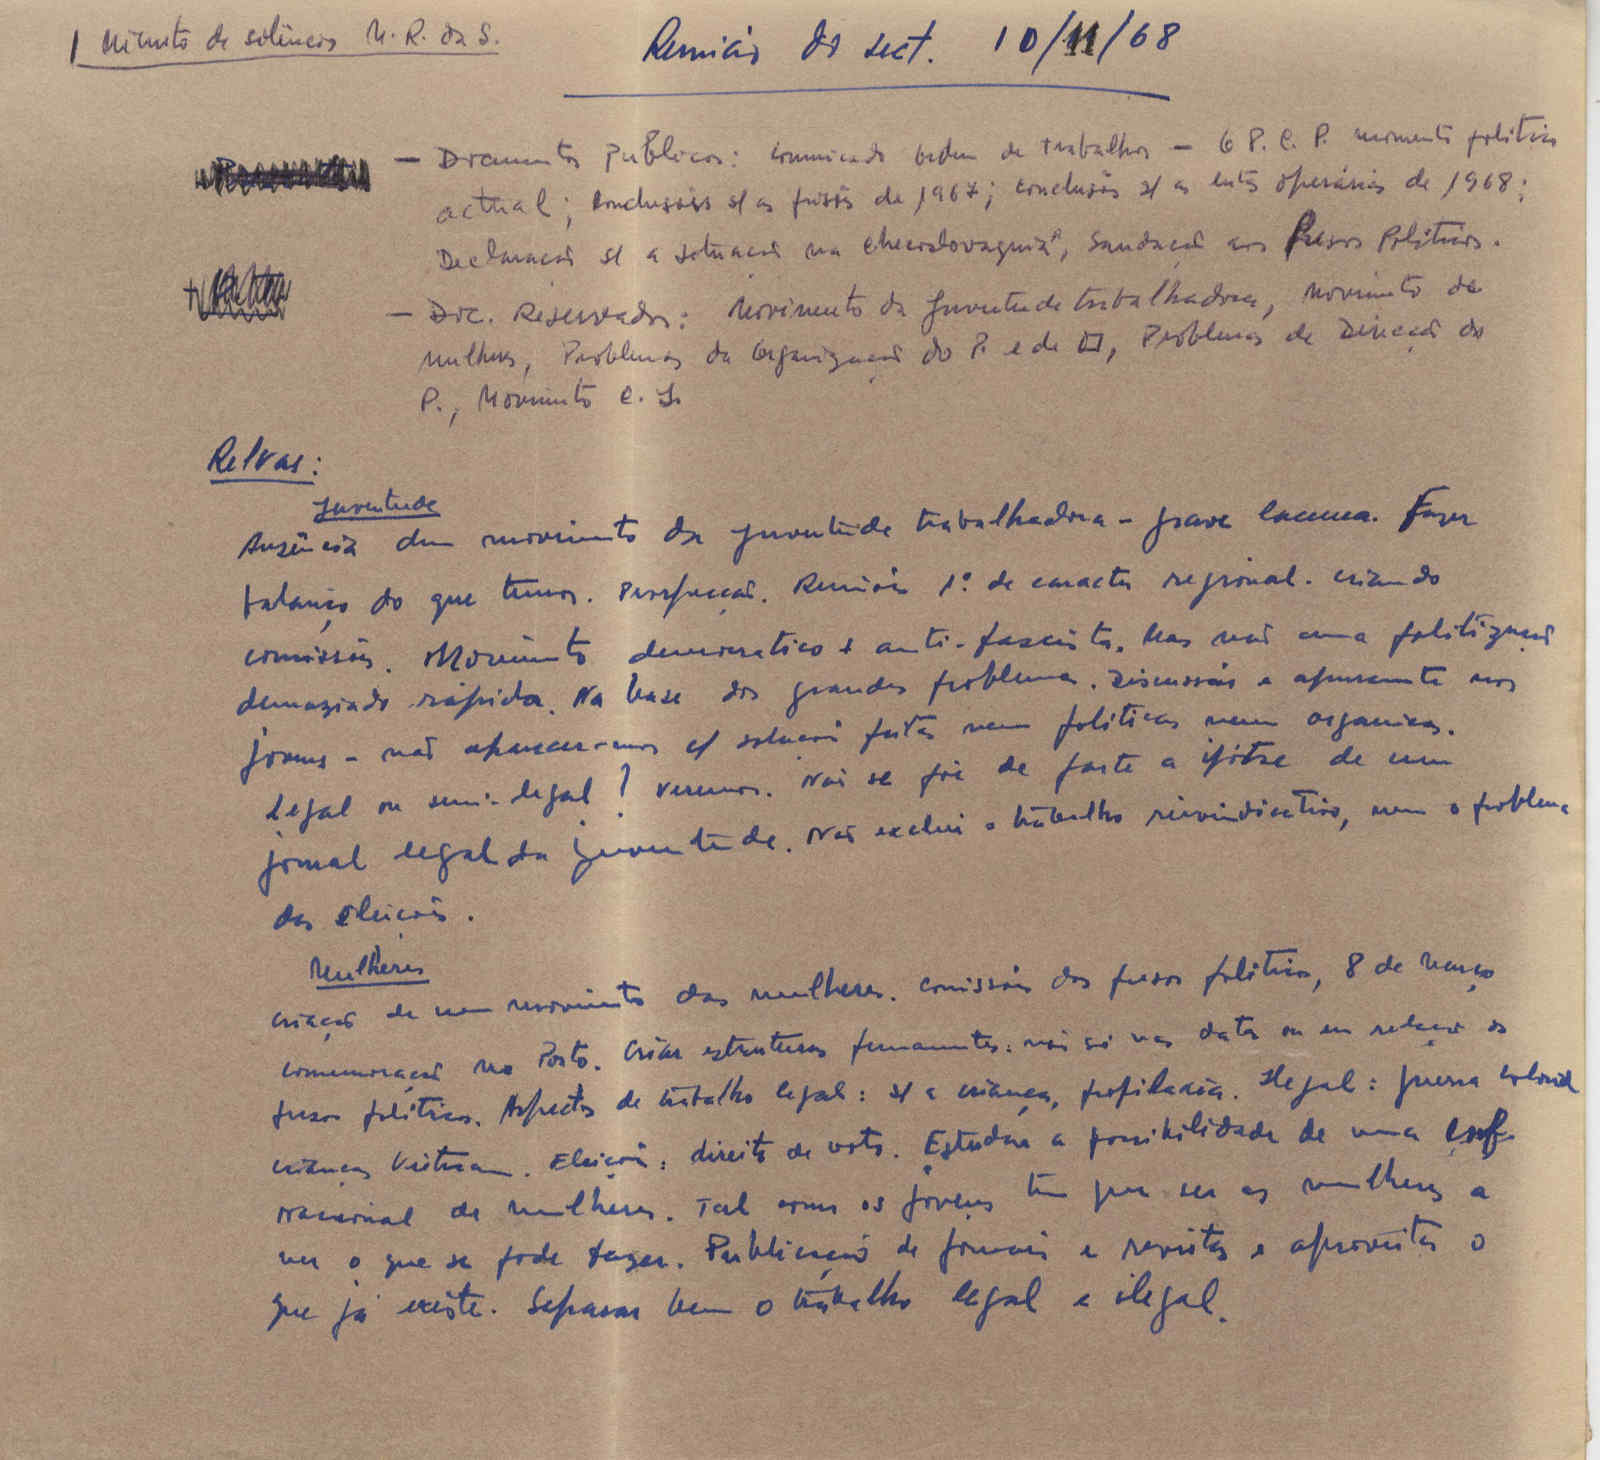 1 Minuto de silêncio M. R. da S.
Reunião do sect. 10/11/68
- Documentos Públicos: comunicado ordem de trabalhos - O P. C. P. momento político
actual; conclusões s/ as prisões de 1967; conclusões s/ as lutas operárias de 1968;
Declaração s/ a situação na Checoslováquia, Saudação aos Presos Políticos.
- Doc. Reservados: Movimento da Juventude trabalhadora, Movimento de
mulheres, Problemas da Organização do P. e da Problemas de Direcção do
P., Movimento C. I.
Relvas:
Juventude
Ausência dum movimento da juventude trabalhadora - grave lacuna. Fazer
balanço do que temos. Prospecção. Reunião 1º de caracter regional. criando
comissões. Movimento democratico e anti-fascista. Mas não uma politização
demaziado rápida. Na base dos grandes problemas. Discussão e apresente aos
jovens - não aparecer-mos c/ solução feitas nem politicas nem organicas.
Legal ou semi-legal? Veremos. Não se põe de parte a ipótse de um
jornal legal da juventude. Não exclui o trabalho reivindicativo, nem o problema
das eleições.
Mulheres
criação de um movimento das mulheres. comissões dos presos politicos, 8 de Março
comemoração no Porto. Criar estruturas permanentes: não só nas datas ou em relação os
presos políticos. Aspectos de trabalho legal: s/ a criança, profilaxia. Ilegal: guerra colonial
crianças Vietnam. Eleições: direito de voto. Estudar a possibilidade de uma conf.
nacional de mulheres. Tal como os jovens tem que ser as mulheres a
ver o que se pode fazer. Publicação de jornais e revistas e aproveitar o
que já existe. Separar bem o trabalho legal e ilegal.